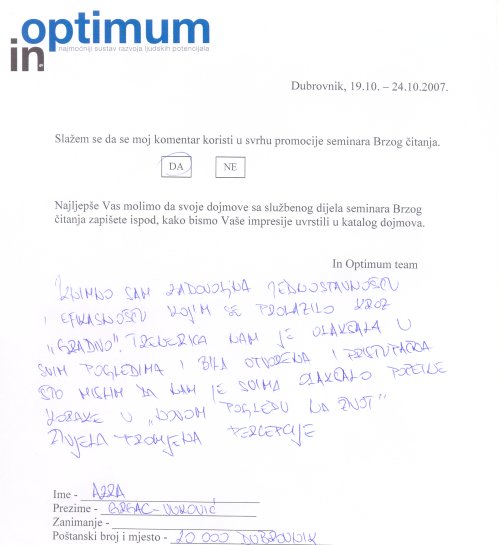 in optimum
najmoćniji sustav razvoja ljudskih potencijala
Dubrovnik, 19.10. – 24.10.2007.
Slažem se da se moj komentar koristi u svrhu promocije seminara Brzog čitanja.
DA NE
Najljepše Vas molimo da svoje dojmove sa službenog dijela seminara Brzog
čitanja zapišete ispod, kako bismo Vaše impresije uvrstili u katalog dojmova.
In Optimum team
IZNIMNO SAM ZADOVOLJNA JEDNOSTAVNOŠĆU
I EFIKASNOŠĆU KOJIM SE PROLAZILO KROZ
„GRADIVO". TRENERICA NAM JE OLAKŠALA U
SVIM POGLEDIMA I BILA OTVORENA I PRISTUPAČNA
ŠTO MISLIM DA NAM JE SVIMA OLAKŠALO POČETNE
KORAKE U „NOVOM POGLEDU NA ŽIVOT"
ŽIVJELA PROMJENA PERCEPCIJE
Ime - AZRA
Prezime - GRGAC-VUKOVIĆ
Zanimanje -
Poštanski broj i mjesto - 20 000 DUBROVNIK